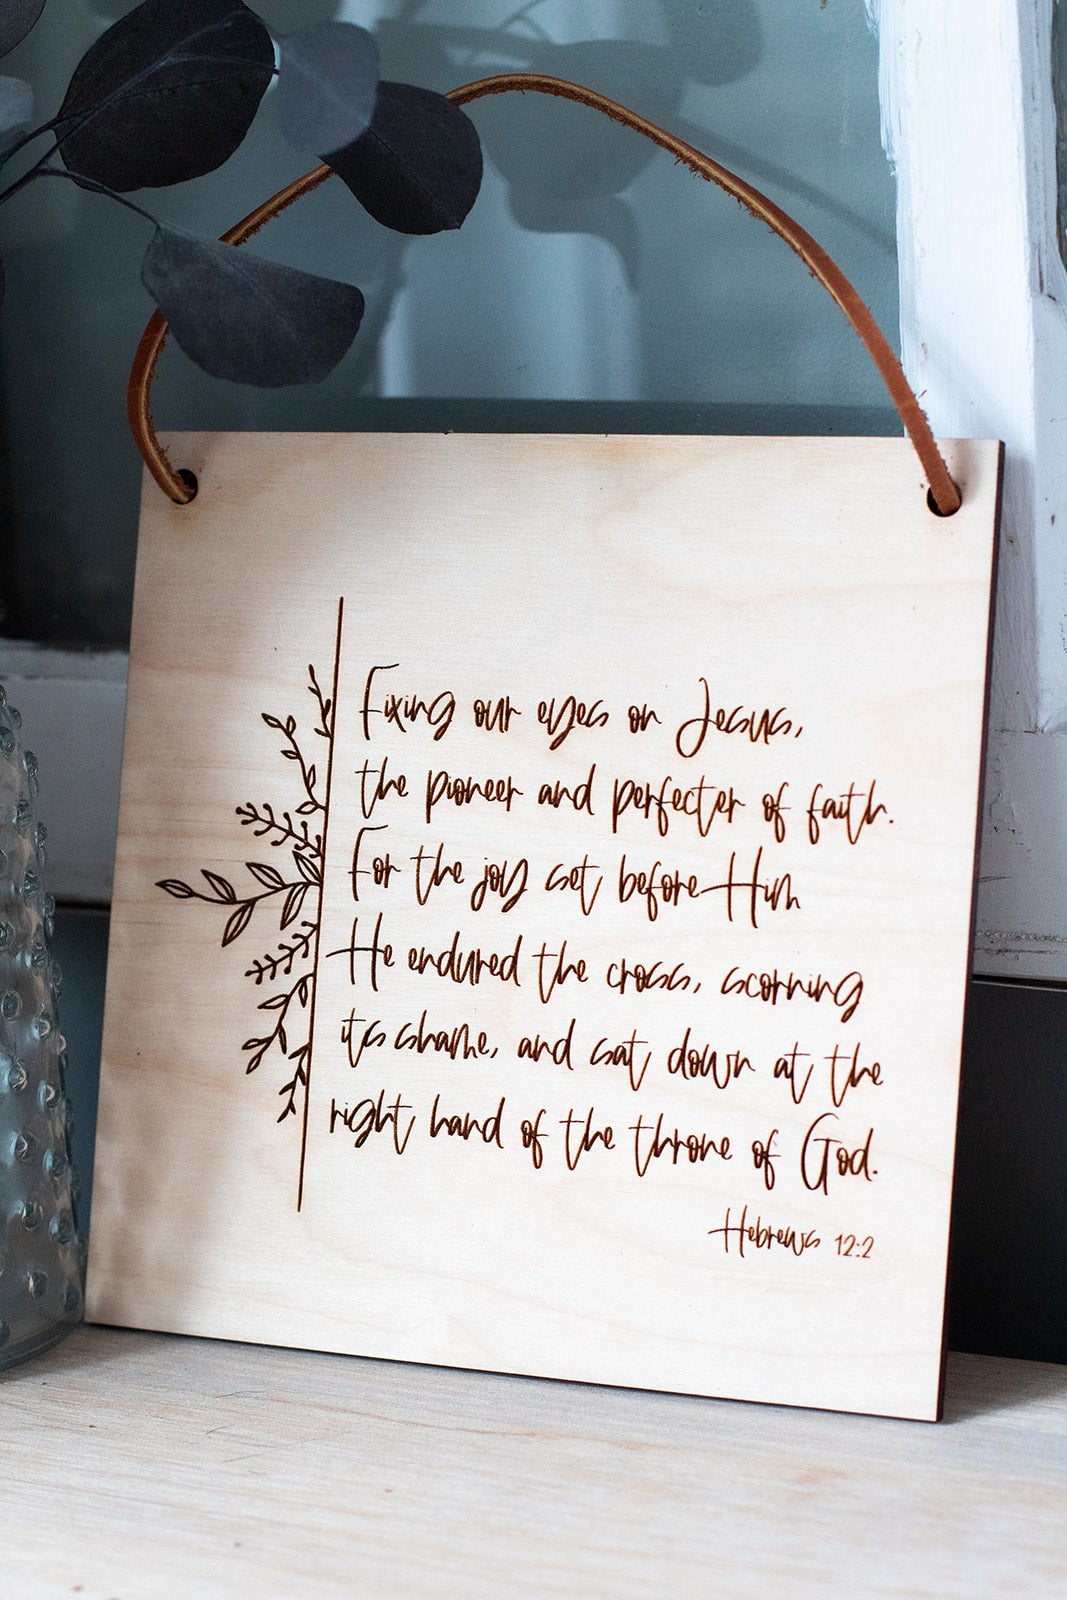 Fixing our eyes on Jesus,
the pioneer and perfecter of faith.
For the joy set before Him
He endured the cross, scorning
its shame, and sat down at the
right hand of the throne of God.
Hebrews 12:2